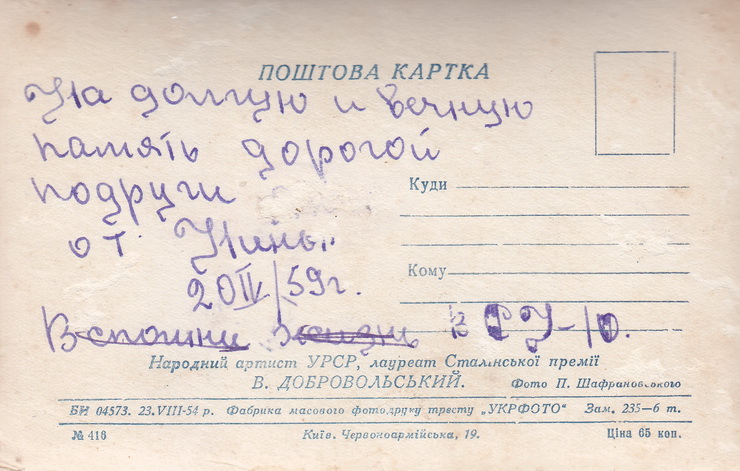 ПОШТОВА КАРТКА
На долгую и вечную
память дорогой
подруги
от Нины.
20 IV/59г.
Куди
Кому
Вспомни жизнь в СУ-10.
Народний артист УРСР, лауреат Сталінської премії
В. ДОБРОВОЛЬСЬКИЙ.
Фото П. Шафрановського
БИ 04573. 23.VIII-54 р. Фабрика масового фотодруку тресту „УКРФОТО“ Зам. 235—6 т.
№ 416 Київ. Червоноармійська, 19. Ціна 65 коп.